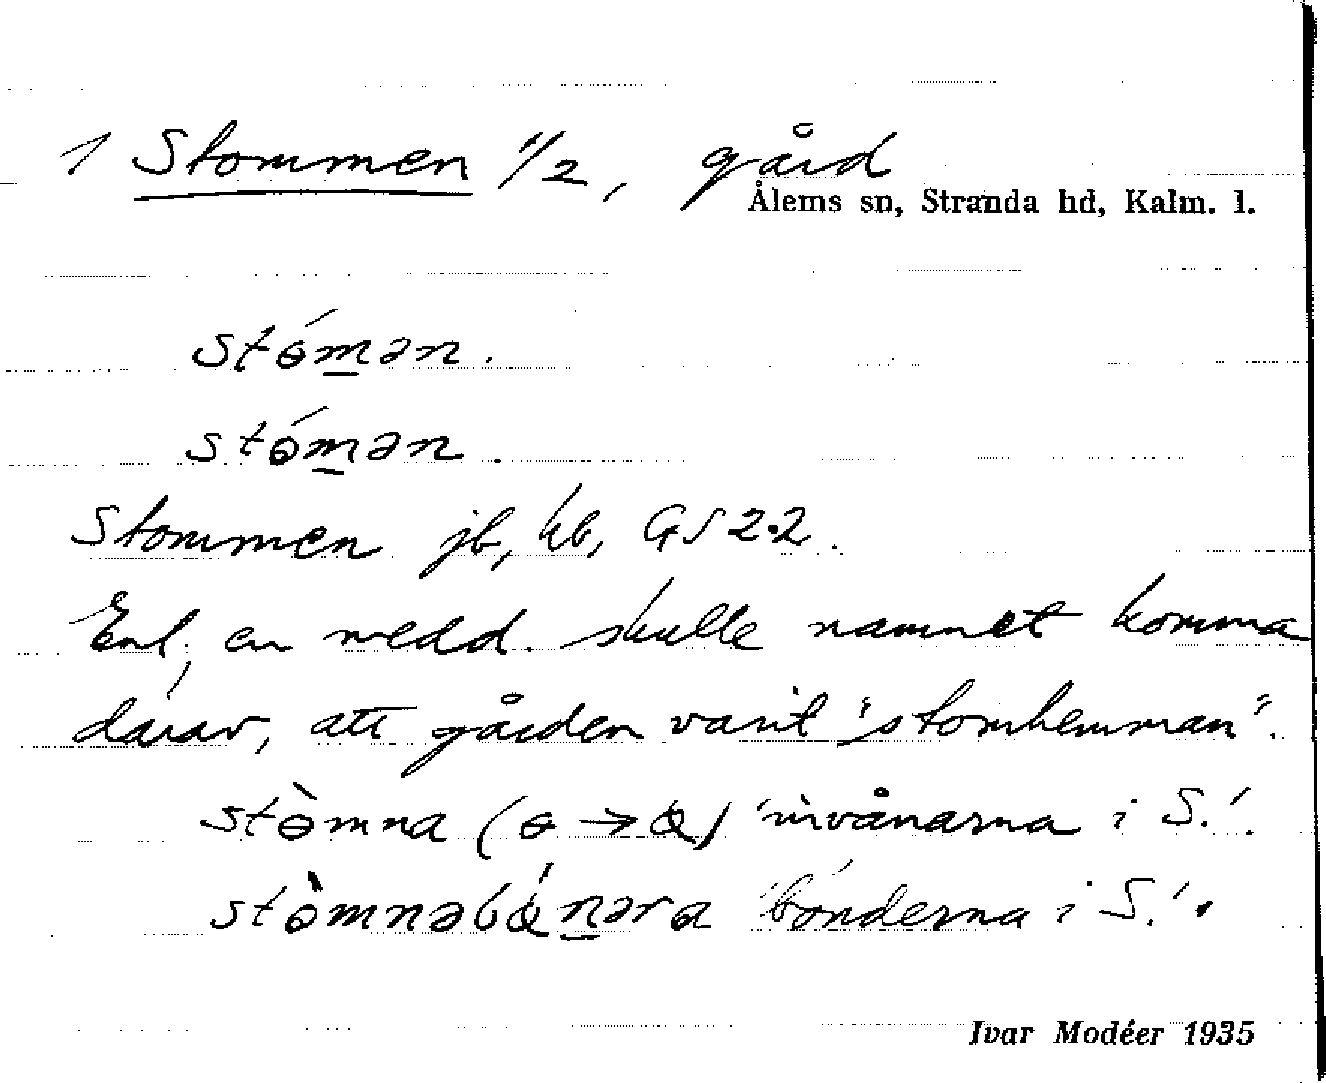 1 Stommen 1/2, gård
Ålems sn, Stranda hd, Kalm. l.
stɵ́mən.
stɵ́mən.
Stommen jb, kb, GS 22.
Enl. en medd. skulle namnet komma
därav, att gården varit 'stomhemman'.
stɵ̀mna (ɵ → ) 'invånarna i S.'.
'bönderna i S.'.
Ivar Modéer 1935